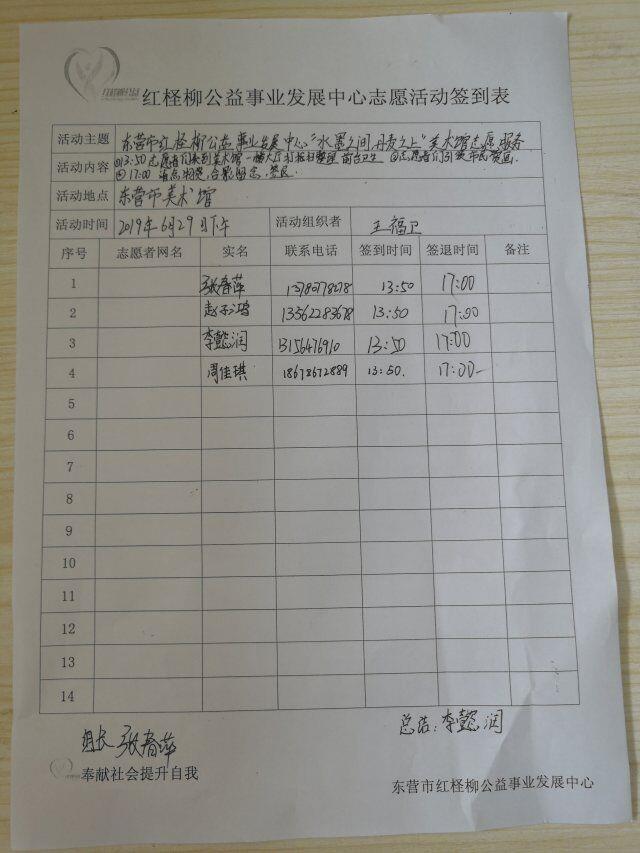 红柽柳公益事业发展中心志愿活动签到表
活动主题 东营市红柽柳公益事业发展中心“水墨之间,丹麦之上”美术馆志愿服务
活动内容 ①13:50志愿者们来到美术馆一楼大厅打扫整理前台卫生 ②志愿者们引领市民赏画
17:00 清点物资,合影留念,签退.
活动地点 东营市美术馆
活动时间 2019年6月29日下午 活动组织者 王福卫
序号 志愿者网名 实名 联系电话 签到时间 签退时间 备注
1 张春萍 13:50 17:00
2 赵子鸿 13562283678 13:50 17:00
3 李懿润 13156476910 13:50 17:00
4 周佳琪 18678672889 13:50. 17:00
5
6
7
8
9
10
11
12
13
14
组长 张春萍 总结:李懿润
奉献社会提升自我
东营市红柽柳公益事业发展中心